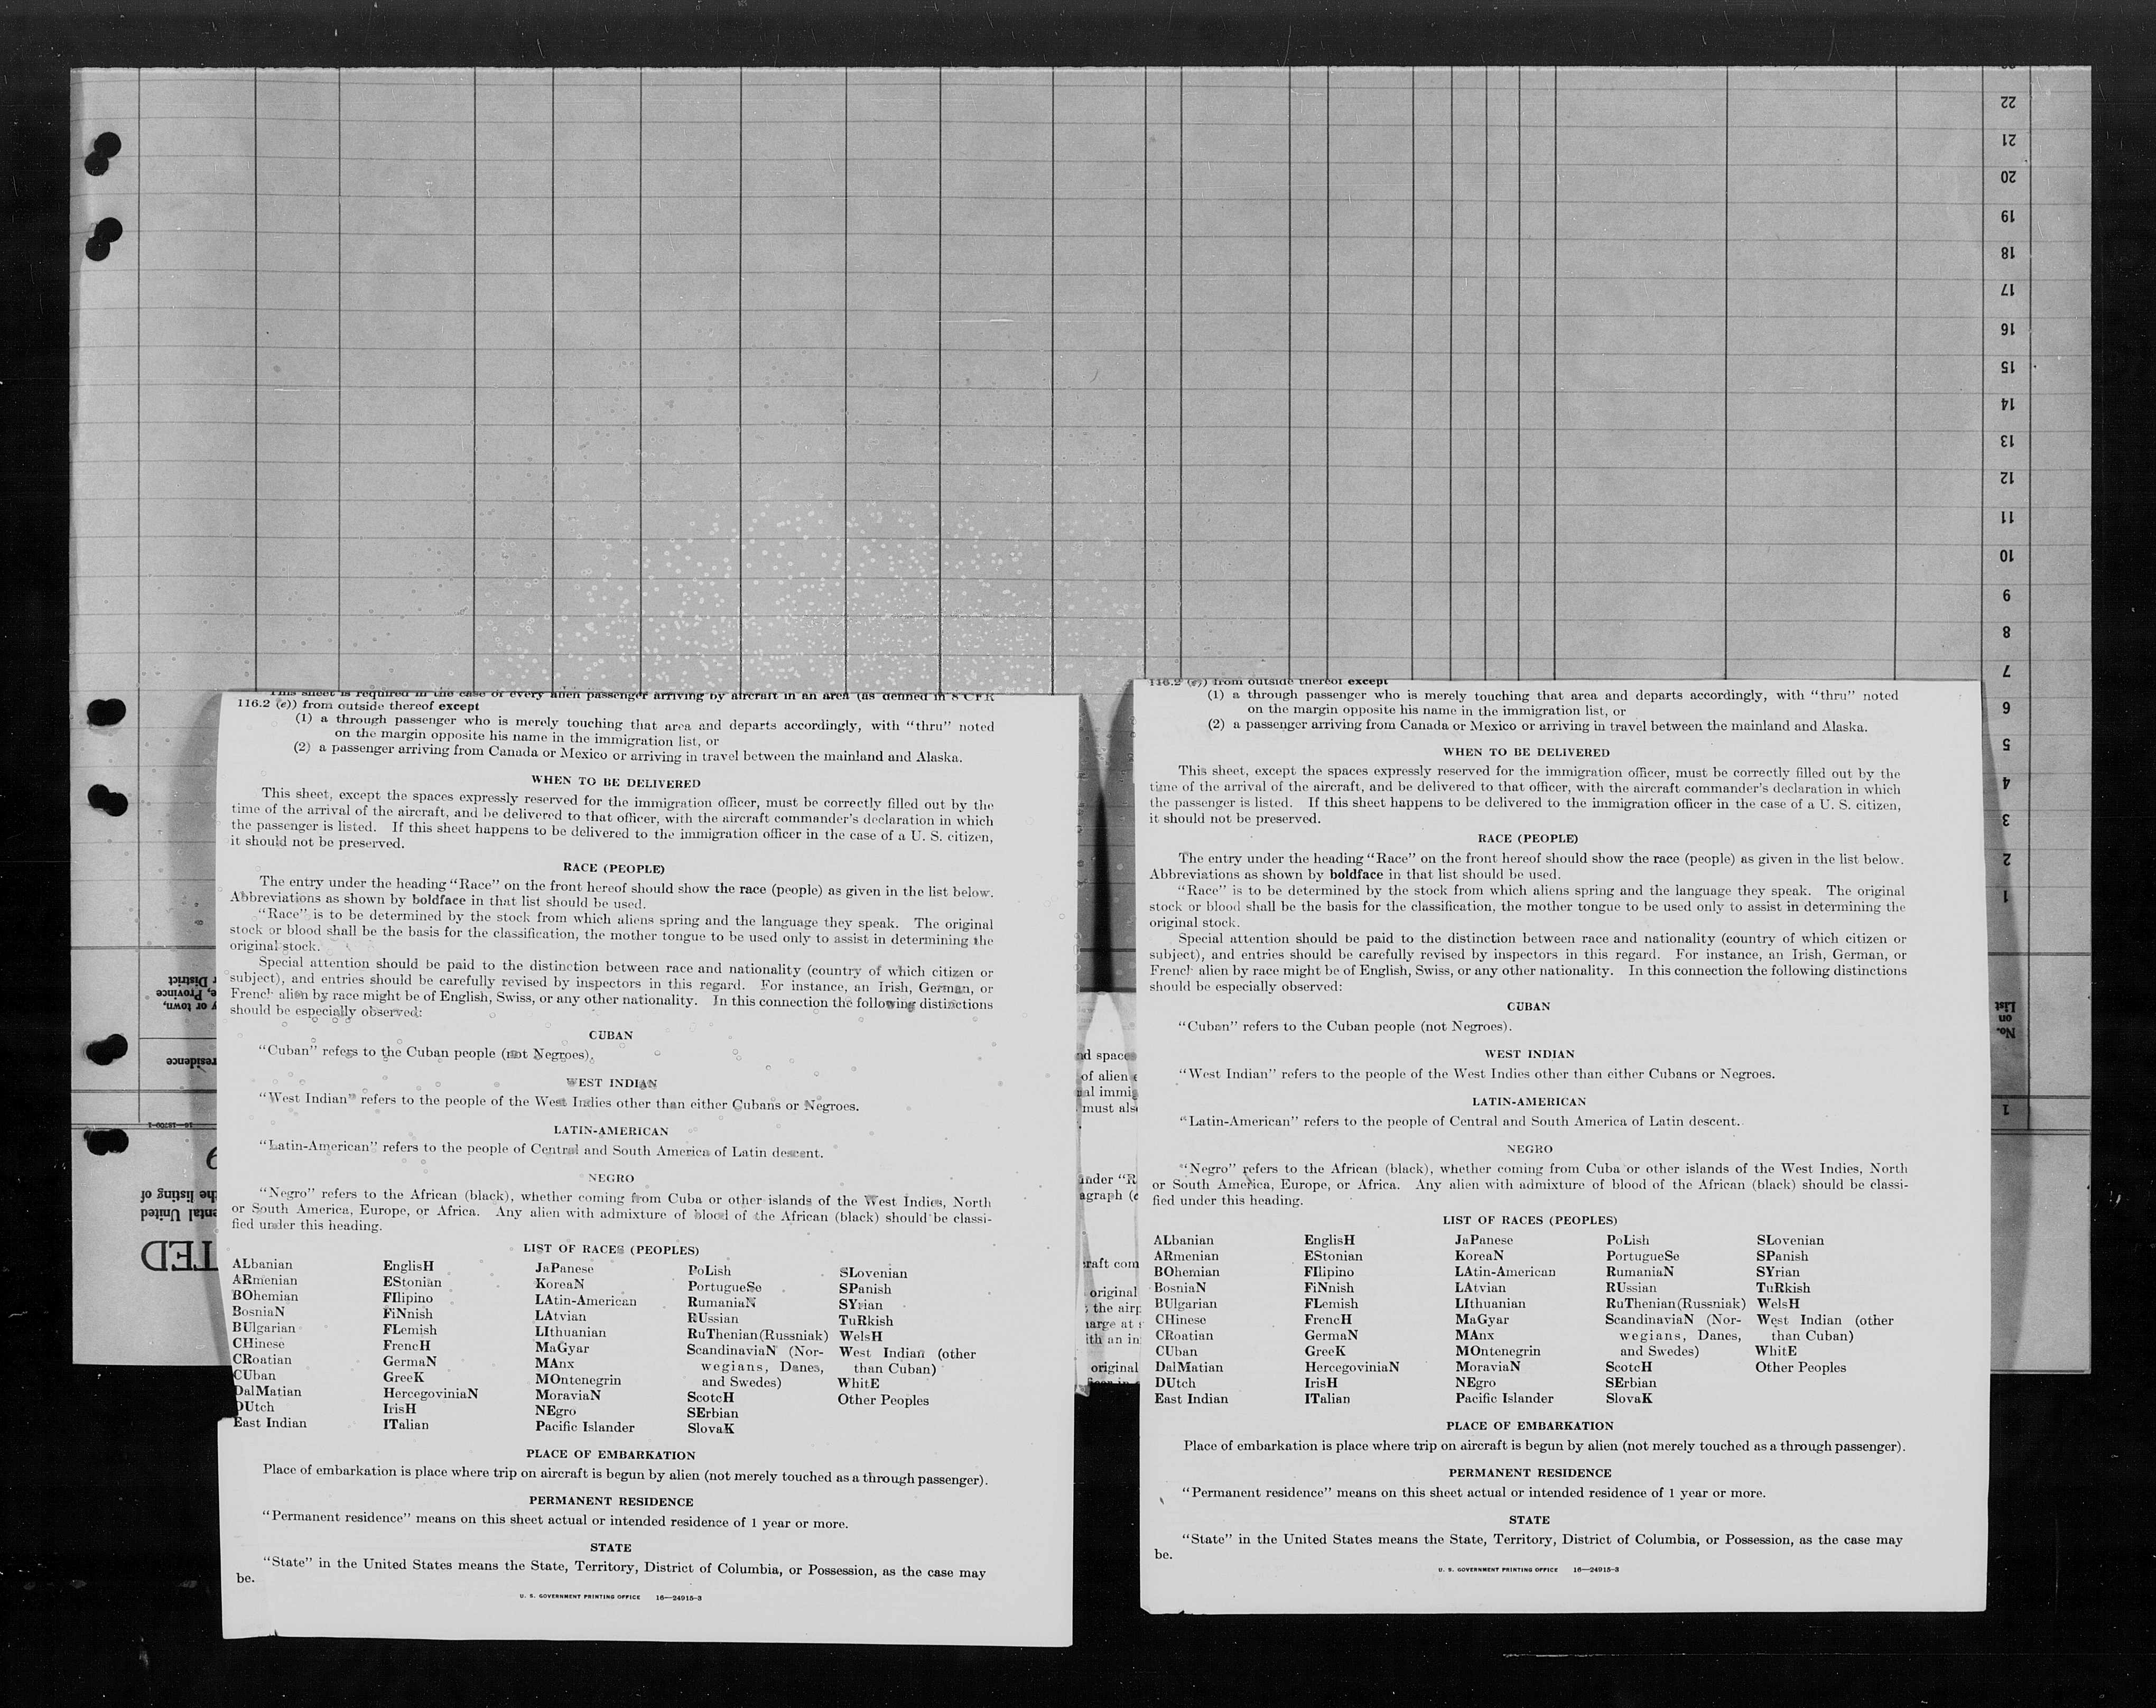 This sheet is required in the case of every alien passenger arriving by aircraft in an area (as defined in 8 CFR
116.2 (e)) from outside thereof except
(1) a through passenger who is merely touching that area and departs accordingly, with “thru” noted
on the margin opposite his name in the immigration list, or
(2) a passenger arriving from Canada or Mexico or arriving in travel between the mainland and Alaska.
WHEN TO BE DELIVERED
This sheet, except the spaces expressly reserved for the immigration officer, must be correctly filled out by the
time of the arrival of the aircraft, and be delivered to that officer, with the aircraft commander's declaration in which
the passenger is listed. If this sheet happens to be delivered to the immigration officer in the case of a U. S. citizen,
it should not be preserved.
RACE (PEOPLE)
The entry under the heading “Race” on the front hereof should show the race (people) as given in the list below.
Abbreviations as shown by boldface in that list should be used.
“Race” is to be determined by the stock from which aliens spring and the language they speak. The original
stock or blood shall be the basis for the classification, the mother tongue to be used only to assist in determining the
original stock.
Special attention should be paid to the distinction between race and nationality (country of which citizen or
subject), and entries should be carefully revised by inspectors in this regard. For instance, an Irish, German, or
French alien by race might be of English, Swiss, or any other nationality. In this connection the following distinctions
should be especially observed:
CUBAN
“Cuban” refers to the Cuban people (not Negroes).
WEST INDIAN
“West Indian” refers to the people of the West Indies other than either Cubans or Negroes.
LATIN-AMERICAN
“Latin-American” refers to the people of Central and South America of Latin descent.
NEGRO
“Negro” refers to the African (black), whether coming from Cuba or other islands of the West Indies, North
or South America, Europe, or Africa. Any alien with admixture of blood of the African (black) should be classi-
fied under this heading.
LIST OF RACES (PEOPLES)
ALbanian
ARmenian
BOhemian
BosniaN
BUlgarian
CHinese
CRoatian
CUban
DalMatian
DUtch
East Indian
EnglisH
EStonian
FIlipino
FiNnish
FLemish
FrencH
GermaN
GreeK
HercegoviniaN
IrisH
ITalian
JaPanese
KoreaN
LAtin-American
LAtvian
LIthuanian
MaGyar
MAnx
MOntenegrin
MoraviaN
NEgro
Pacific Islander
PoLish
PortugueSe
RumaniaN
RUssian
RuThenian (Russniak)
ScandinaviaN (Nor-
wegians, Danes,
and Swedes)
ScotcH
SErbian
SlovaK
SLovenian
SPanish
SYrian
TuRkish
WelsH
West Indian (other
than Cuban)
WhitE
Other Peoples
PLACE OF EMBARKATION
Place of embarkation is place where trip on aircraft is begun by alien (not merely touched as a through passenger).
PERMANENT RESIDENCE
“Permanent residence” means on this sheet actual or intended residence of 1 year or more.
STATE
“State” in the United States means the State, Territory, District of Columbia, or Possession, as the case may
be.
U. S. GOVERNMENT PRINTING OFFICE 16—24915-3
116.2 (e)) from outside thereof except
(1) a through passenger who is merely touching that area and departs accordingly, with “thru” noted
on the margin opposite his name in the immigration list, or
(2) a passenger arriving from Canada or Mexico or arriving in travel between the mainland and Alaska.
WHEN TO BE DELIVERED
This sheet, except the spaces expressly reserved for the immigration officer, must be correctly filled out by the
time of the arrival of the aircraft, and be delivered to that officer, with the aircraft commander's declaration in which
the passenger is listed. If this sheet happens to be delivered to the immigration officer in the case of a U. S. citizen,
it should not be preserved.
RACE (PEOPLE)
The entry under the heading “Race” on the front hereof should show the race (people) as given in the list below.
Abbreviations as shown by boldface in that list should be used.
“Race” is to be determined by the stock from which aliens spring and the language they speak. The original
stock or blood shall be the basis for the classification, the mother tongue to be used only to assist in determining the
original stock.
Special attention should be paid to the distinction between race and nationality (country of which citizen or
subject), and entries should be carefully revised by inspectors in this regard. For instance, an Irish, German, or
French alien by race might be of English, Swiss, or any other nationality. In this connection the following distinctions
should be especially observed:
CUBAN
“Cuban” refers to the Cuban people (not Negroes).
WEST INDIAN
“West Indian” refers to the people of the West Indies other than either Cubans or Negroes.
LATIN-AMERICAN
“Latin-American” refers to the people of Central and South America of Latin descent.
NEGRO
“Negro” refers to the African (black), whether coming from Cuba or other islands of the West Indies, North
or South America, Europe, or Africa. Any alien with admixture of blood of the African (black) should be classi-
fied under this heading.
LIST OF RACES (PEOPLES)
ALbanian
ARmenian
BOhemian
BosniaN
BUlgarian
CHinese
CRoatian
CUban
DalMatian
DUtch
East Indian
EnglisH
EStonian
FIlipino
FiNnish
FLemish
FrencH
GermaN
GreeK
HercegoviniaN
IrisH
ITalian
JaPanese
KoreaN
LAtin-American
LAtvian
LIthuanian
MaGyar
MAnx
MOntenegrin
MoraviaN
NEgro
Pacific Islander
PoLish
PortugueSe
RumaniaN
RUssian
RuThenian (Russniak)
ScandinaviaN (Nor-
wegians, Danes,
and Swedes)
ScotcH
SErbian
SlovaK
SLovenian
SPanish
SYrian
TuRkish
WelsH
West Indian (other
than Cuban)
WhitE
Other Peoples
PLACE OF EMBARKATION
Place of embarkation is place where trip on aircraft is begun by alien (not merely touched as a through passenger).
PERMANENT RESIDENCE
“Permanent residence” means on this sheet actual or intended residence of 1 year or more.
STATE
“State” in the United States means the State, Territory, District of Columbia, or Possession, as the case may
be.
U. S. GOVERNMENT PRINTING OFFICE 16—24915-3
22
21
20
19
18
17
16
15
14
13
12
11
10
9
8
7
6
5
4
3
2
1
No.
on
List
1
of alien
must
original
the
original
16—18709-1
listing of
United
residence
or town,
Province
District